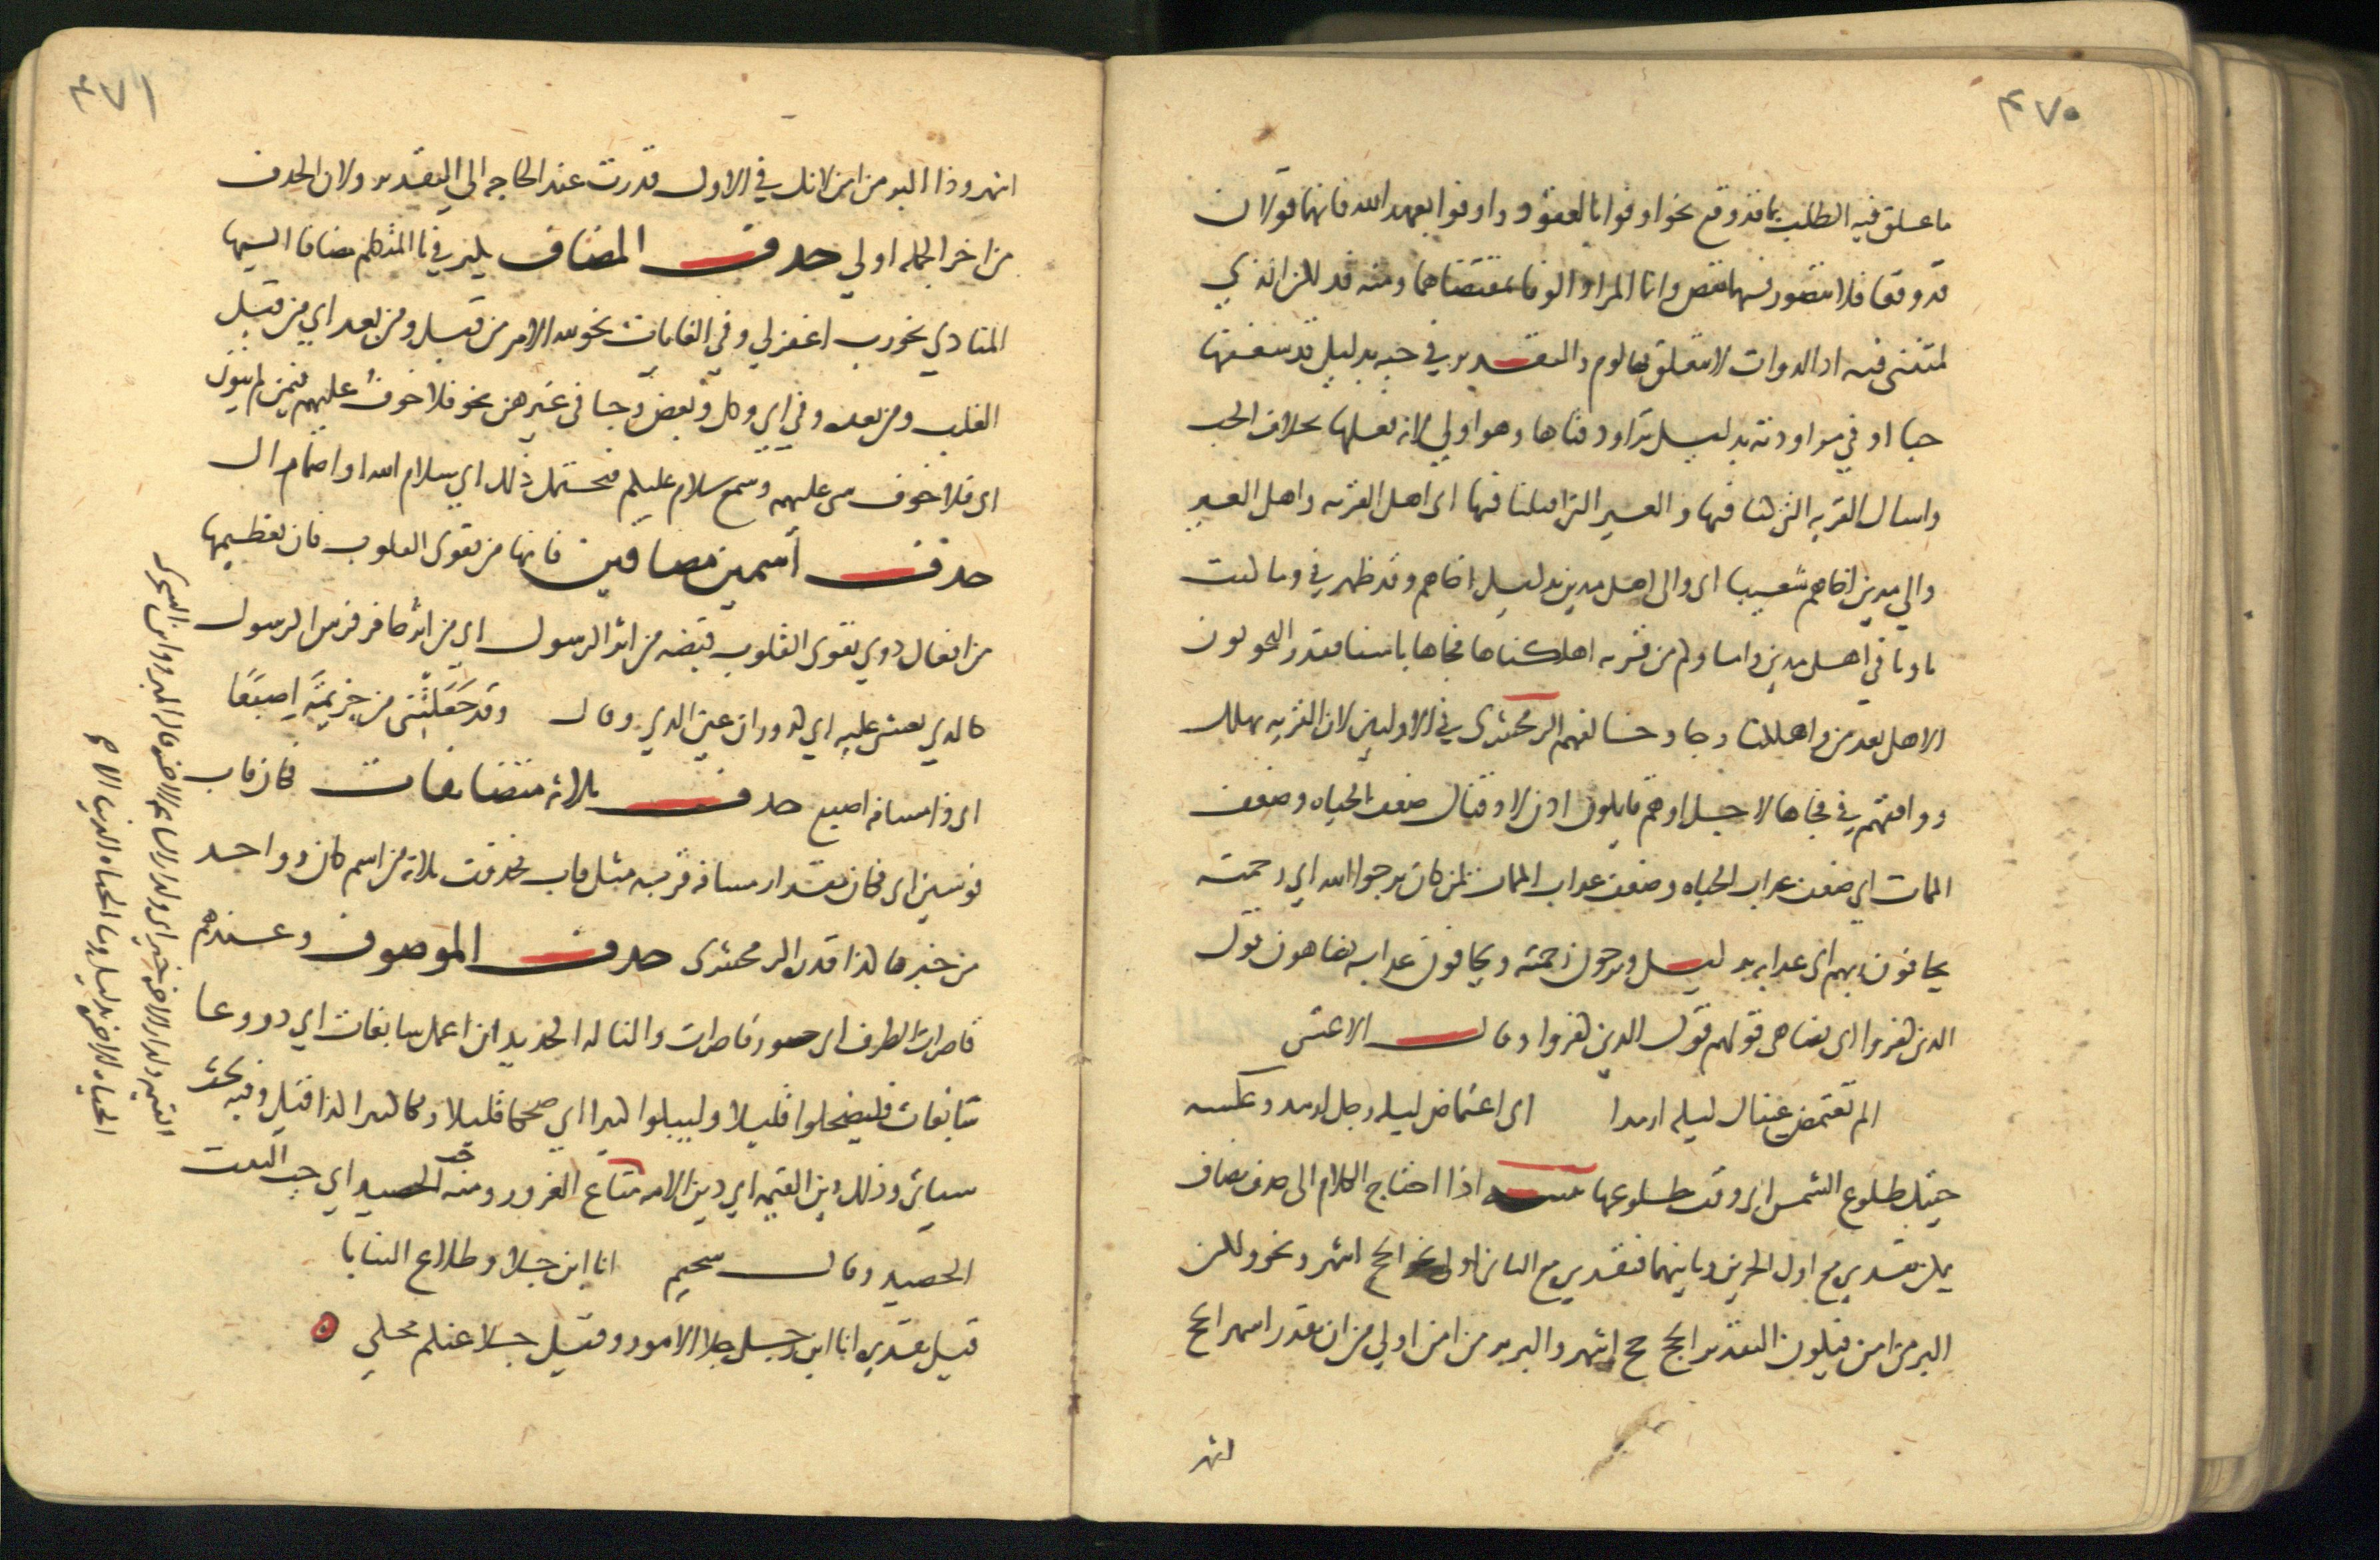 ٤٧٠
ما علق فيه الطلب بما قد وقع نحو اوفوا بالعقود واوفوا بعهد الله فانهما قولان
قد وقعا فلا يتصور فيهما نقض وانما المراد الوفا بمقتضاهما ومنه فدلكن الذي
لمتنني فيه اذ الدوات لا يتعلق بها لوم والتقدير في حبه بدليل قد شغفها
حبا او في مراودته بدليل تراود فتاها وهو اولي لانه فعلها بخلاف الحب
واسال القريه التي كنا فيها والعير التي اقبلنا فيها اى اهل القريه واهل العير
والي مدين اخاهم شعيبا اى والى اهل مدين بدليل اخاهم وقد ظهر في وما كنت
ثاويا في اهل مدين واما وكم من قريه اهلكناها فجاها باسنا فقدر النحويون
الاهل بعد من واهلكنا وجا وخالفهم الزمخشرى في الاولين لان القريه تهلك
ووافقهم في فجاها لاجل اوهم قايلون اذن لاذقناك ضعف الحياه وضعف
الممات اي ضعف عذاب الحياه وضعف عذاب الممات لمن كان يرجوا الله اي رحمته
يخافون ربهم اى عذابه بدليل ويرجون رحمته ويخافون عذابه يضاهون قول
الذين كفروا اى يضاهى قولهم قول الذين كفروا وقال الاعشى
الم تغتمض عيناك ليله ارمدا اى اغتماض ليله رجل ارمد وعكسه
جيتك طلوع الشمس اى وقت طلوعها تنبيه اذا احتاج الكلام الى حذف مضاف
يمكن تقديره مع اول الجزين وثانيهما فتقديره مع الثانى اولى نحو الحج اشهر ونحو ولكن
البر من امن فيكون التقدير الحج حج اشهر والبر بر من امن اولي من ان يقدر اشهر الحج
اشهر
٤٧١
اشهر وذا البر من امن لانك في الاول قدرت عند الحاجه الي التقدير ولان الحذف
من اخر الجمله اولي حذف المضاف يكثر في يا المتكلم مضافا اليها
المنادي نحو رب اغفر لي وفي الغايات نحو لله الامر من قبل ومن بعد اي من قبل
الغلب ومن بعده وفي اي وكل وبعض وجا في غيرهن نحو فلا خوف عليهم فيمن لم ينون
اى فلا خوف شى عليهم وسمع سلام عليكم فيحتمل ذلك اي سلام الله او اضمار ال
حذف اسمين مضافين فانها من تقوى القلوب فان تعظيمها
من افعال ذوي تقوى القلوب قبضه من اثر الرسول اى من اثر حافر فرس الرسول
كالدي يغشى عليه اي كدوران عين الدي وقال وقد جعلتني من حزيمة اصبعا
اى ذا مسافه اصبع حذف ثلاثه متضايفات فكان قاب
قوسين اى فكان مقدار مسافه قربه مثل قاب فحذفت ثلاثه من اسم كان وواحد
من خبرها كذا قدره الزمخشرى حذف الموصوف وعندهم
قاصرات الطرف اى حور قاصرات والنا له الحديد ان اعمل سابغات اي دروعا
سابغات فليضحكوا قليلا وليبكوا كثيرا اي ضحكا قليلا وبكا كثيرا كذا قيل وفيه بحث
سياتى وذلك دين القيمه اي دين الامه متاع الغرور ومنه حب الحصيد اي حب النبت
الحصيد وقال سحيم انا ابن جلا وطلاع الثنايا
قيل تقديره انا ابن رجل جلا الامور وقيل جلا علم محكي ه
القيمه ولدار الاخره خير اى ولدار الساعه الاخره قاله المبرد وابن الشجرى
الحياه الاخره بدليل وما الحياه الدنيا الا متاع